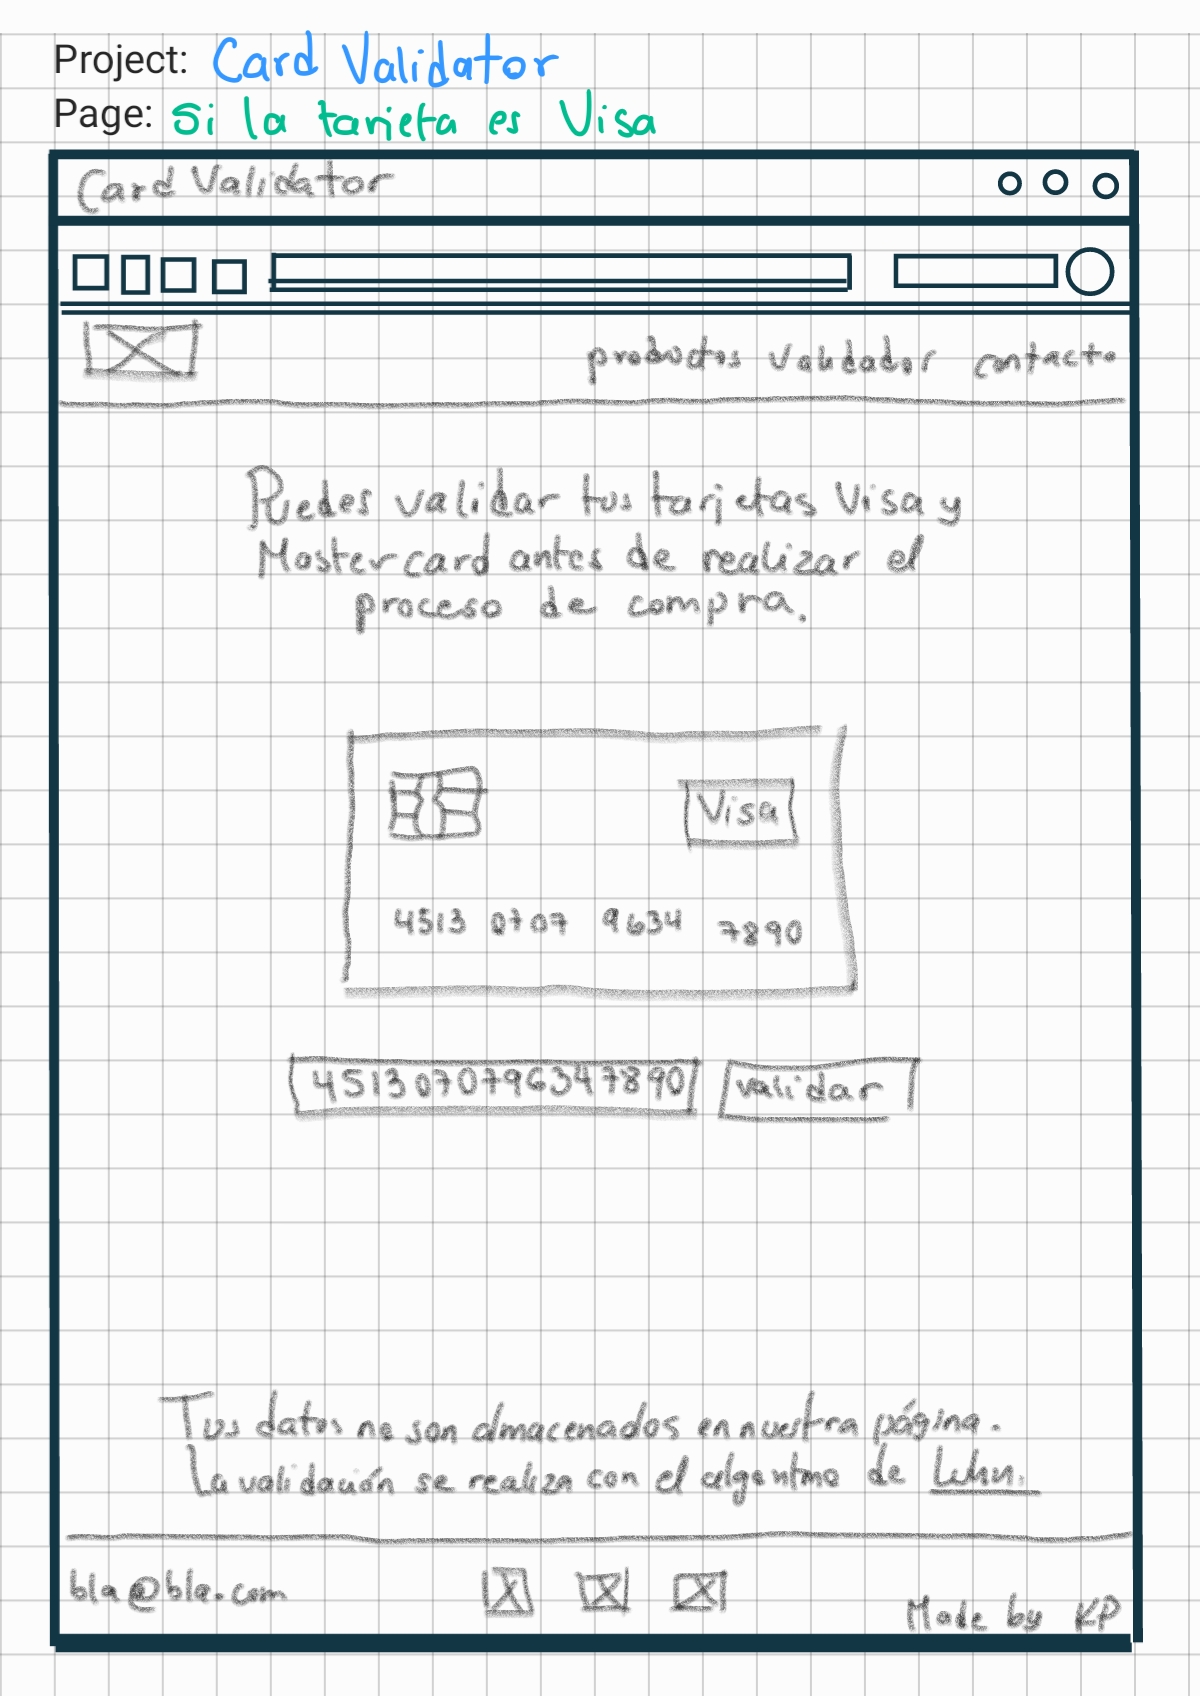 Project: Card Validator
Page: Si la tarjeta es Visa
Card Validator
productos validador contacto
Puedes validar tus tarjetas Visa y
Mastercard antes de realizar el
proceso de compra.
Visa
4513 0707 9634 7890
4513070796347890 validar
Tus datos no son almacenados en nuestra página.
La validación se realiza con el algoritmo de Luhn.
bla@bla.com
Made by KP